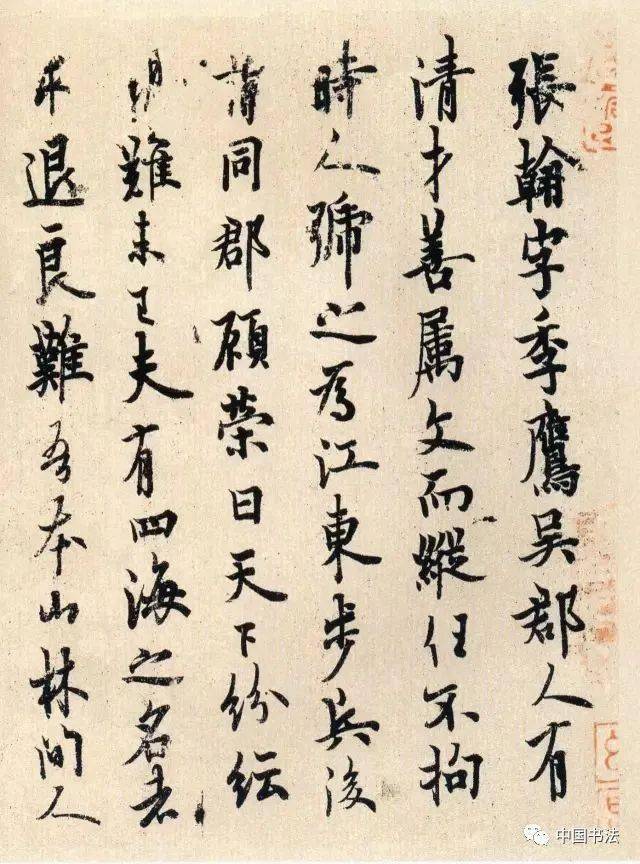 張翰字季鷹吳郡人有
清才善属文而縱任不拘
時人號之為江東步兵後
同郡顧榮曰天下紛紜
難未已夫有四海之名者
求退良難吾本山林間人
中国书法